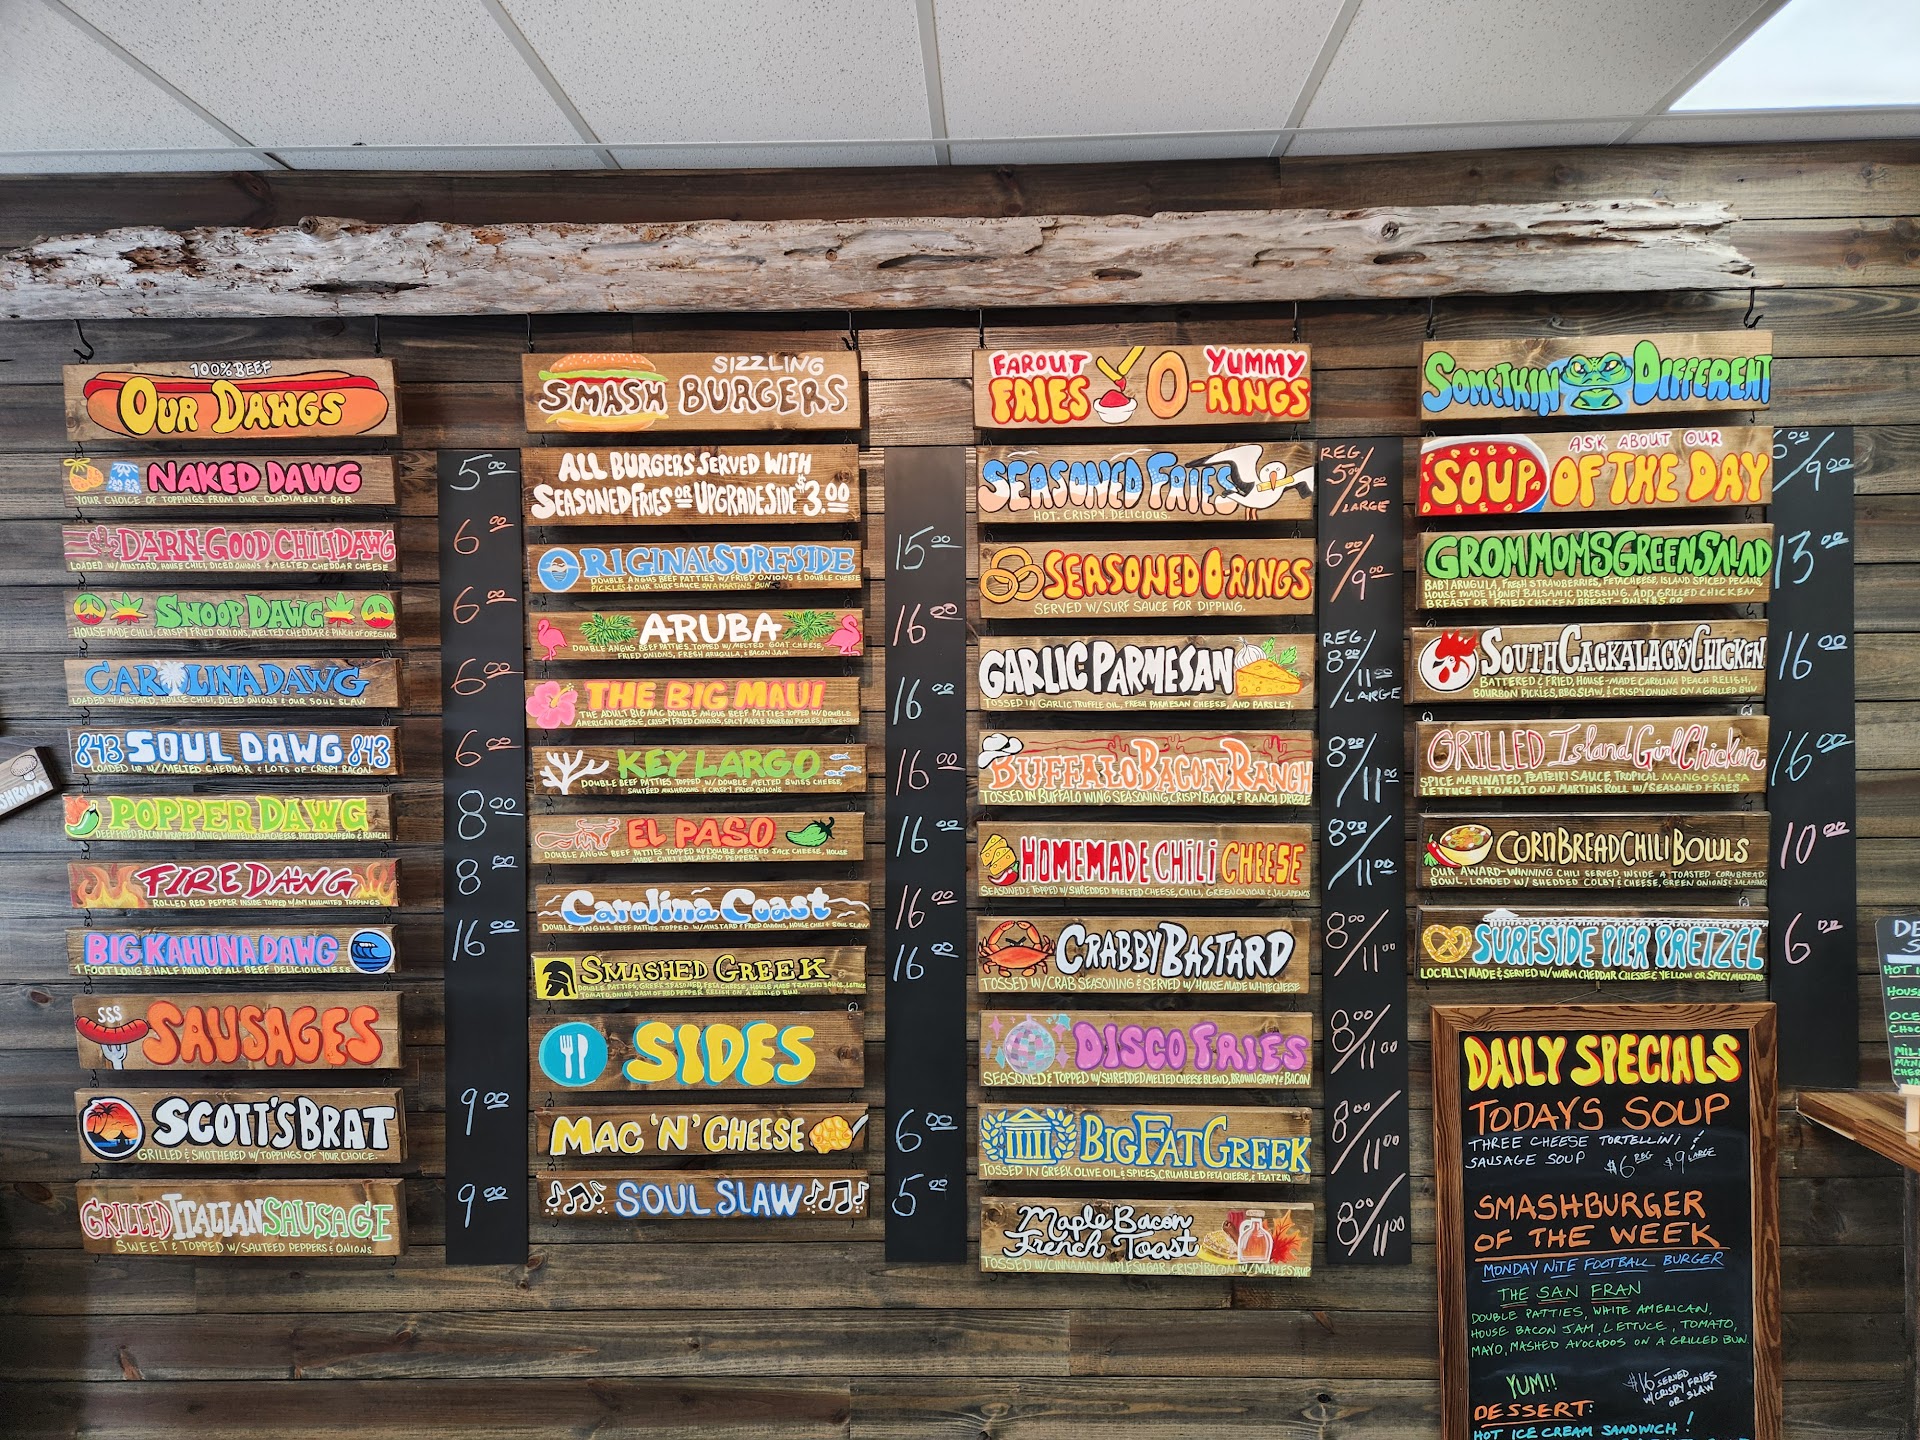 100% BEEF
OUR DAWGS
NAKED DAWG
YOUR CHOICE OF TOPPINGS FROM OUR CONDIMENT BAR.
5.00
DARN-GOOD CHILI DAWG
LOADED W/ MUSTARD, HOUSE CHILI, DICED ONIONS & MELTED CHEDDAR CHEESE
6.00
SNOOP DAWG
HOUSE MADE CHILI, CRISPY FRIED ONIONS, MELTED CHEDDAR & PINCH OF OREGANO
6.00
CAROLINA DAWG
LOADED W/ MUSTARD, HOUSE CHILI, DICED ONIONS & OUR SOUL SLAW
6.00
843 SOUL DAWG 843
LOADED UP W/ MELTED CHEDDAR & LOTS OF CRISPY BACON
6.00
POPPER DAWG
DEEP FRIED BACON WRAPPED DAWG, WHIPPED CREAM CHEESE, PICKLED JALAPENO & RANCH
8.00
FIRE DAWG
ROLLED RED PEPPER INSIDE TOPPED W/ ANY UNLIMITED TOPPINGS
8.00
BIG KAHUNA DAWG
1 FOOT LONG & HALF POUND OF ALL BEEF DELICIOUSNESS
16.00
SSS
SAUSAGES
SCOTT'S BRAT
GRILLED & SMOTHERED W/ TOPPINGS OF YOUR CHOICE.
9.00
GRILLED ITALIAN SAUSAGE
SWEET & TOPPED W/ SAUTEED PEPPERS & ONIONS.
9.00
SIZZLING
SMASH BURGERS
ALL BURGERS SERVED WITH
SEASONED FRIES OR UPGRADE SIDE $3.00
ORIGINAL SURFSIDE
DOUBLE ANGUS BEEF PATTIES W/ FRIED ONIONS & DOUBLE CHEESE
PICKLES & OUR SURF SAUCE ON A MARTINS BUN
15.00
ARUBA
DOUBLE ANGUS BEEF PATTIES TOPPED W/ MELTED GOAT CHEESE,
FRIED ONIONS, FRESH ARUGULA, & BACON JAM
16.00
THE BIG MAUI
THE ADULT BIG MAC DOUBLE ANGUS BEEF PATTIES TOPPED W/ DOUBLE
AMERICAN CHEESE, CRISPY FRIED ONIONS, SPICY MAPLE BOURBON PICKLES, LETTUCE
16.00
KEY LARGO
DOUBLE BEEF PATTIES TOPPED W/ DOUBLE MELTED SWISS CHEESE,
SAUTEED MUSHROOMS & CRISPY FRIED ONIONS
16.00
EL PASO
DOUBLE ANGUS BEEF PATTIES TOPPED W/ DOUBLE MELTED JACK CHEESE, HOUSE
MADE CHILI & JALAPENO PEPPERS
16.00
Carolina Coast
DOUBLE ANGUS BEEF PATTIES TOPPED W/ MUSTARD & FRIED ONIONS, HOUSE CHILI & SOUL SLAW
16.00
SMASHED GREEK
DOUBLE PATTIES, GREEK SEASONED, FETA CHEESE, HOUSE MADE TZATZIKI SAUCE, LETTUCE
TOMATO, ONION, DASH OF RED PEPPER RELISH ON A GRILLED BUN.
16.00
SIDES
MAC 'N' CHEESE
6.00
SOUL SLAW
5.00
FAROUT FRIES
YUMMY O-RINGS
SEASONED FRIES
HOT. CRISPY. DELICIOUS.
REG. 5.00/8.00 LARGE
SEASONED O-RINGS
SERVED W/ SURF SAUCE FOR DIPPING.
6.00/9.00
GARLIC PARMESAN
TOSSED IN GARLIC TRUFFLE OIL, FRESH PARMESAN CHEESE, AND PARSLEY.
REG. 8.00/11.00 LARGE
BUFFALO BACON RANCH
TOSSED IN BUFFALO WING SEASONING CRISPY BACON, & RANCH DRIZZLE
8.00/11.00
HOMEMADE CHILI CHEESE
SEASONED & TOPPED W/ SHREDDED MELTED CHEESE, CHILI, GREEN ONIONS & JALAPENOS
8.00/11.00
CRABBY BASTARD
TOSSED W/ CRAB SEASONING & SERVED W/ HOUSE MADE WHITE CHEESE
8.00/11.00
DISCO FRIES
SEASONED & TOPPED W/ SHREDDED MELTED CHEESE BLEND, BROWN GRAVY & BACON
8.00/11.00
BIG FAT GREEK
TOSSED IN GREEK OLIVE OIL & SPICES, CRUMBLED FETA CHEESE, & TZATZIKI
8.00/11.00
Maple Bacon
French Toast
TOSSED W/ CINNAMON MAPLE SUGAR, CRISPY BACON W/ MAPLE SYRUP
8.00/11.00
SOMETHIN DIFFERENT
ASK ABOUT OUR
SOUP OF THE DAY
6.00/9.00
GROM MOMS GREEN SALAD
BABY ARUGULA, FRESH STRAWBERRIES, FETA CHEESE, ISLAND SPICED PECANS,
HOUSE MADE HONEY BALSAMIC DRESSING. ADD GRILLED CHICKEN
BREAST OR FRIED CHICKEN BREAST - ONLY $5.00
13.00
SOUTH CACKALACKY CHICKEN
BATTERED & FRIED, HOUSE-MADE CAROLINA PEACH RELISH,
BOURBON PICKLES, BBQ SLAW, & CRISPY ONIONS ON A GRILLED BUN
16.00
GRILLED Island Girl Chicken
SPICE MARINATED, TZATZIKI SAUCE, TROPICAL MANGO SALSA
LETTUCE & TOMATO ON MARTINS ROLL W/ SEASONED FRIES
16.00
CORNBREAD CHILI BOWLS
OUR AWARD-WINNING CHILI SERVED INSIDE A TOASTED CORNBREAD
BOWL, LOADED W/ SHEDDED COLBY & CHEESE, GREEN ONIONS & JALAPENOS
10.00
SURFSIDE PIER PRETZEL
LOCALLY MADE & SERVED W/ WARM CHEDDAR CHESSE & YELLOW OR SPICY MUSTARD
6.00
DAILY SPECIALS
TODAYS SOUP
THREE CHEESE TORTELLINI &
SAUSAGE SOUP $6 REG $9 LARGE
SMASHBURGER
OF THE WEEK
MONDAY NITE FOOTBALL BURGER
THE SAN FRAN
DOUBLE PATTIES, WHITE AMERICAN,
HOUSE BACON JAM, LETTUCE, TOMATO,
MAYO, MASHED AVOCADOS ON A GRILLED BUN.
YUM!!
$16 SERVED
W/ CRISPY FRIES
OR SLAW
DESSERT:
HOT ICE CREAM SANDWICH!
SHROOM
DE
HOT I
HOUS
OCE
CHOC
MIL
MAN
CHER
VA